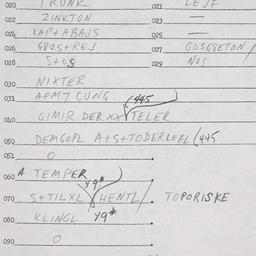 020 TRUNK 021 LEJF
022 ZINKTON 023 —
024 XAP+ABAJS 025 —
026 G82S+REJ 027 GOSGBETON/
028 S+OS 029 NOS
030 NIXTER
031 AFMT CUNG (445
040 GIMIR DER XX TELER
050 DEMGOPL A+S+TODERLEFL (445
051 O
060 A TEMPER Y9*
070 S+TILXL HENTL/ TOPORISKE
080 KLINGL Y9*
090 O